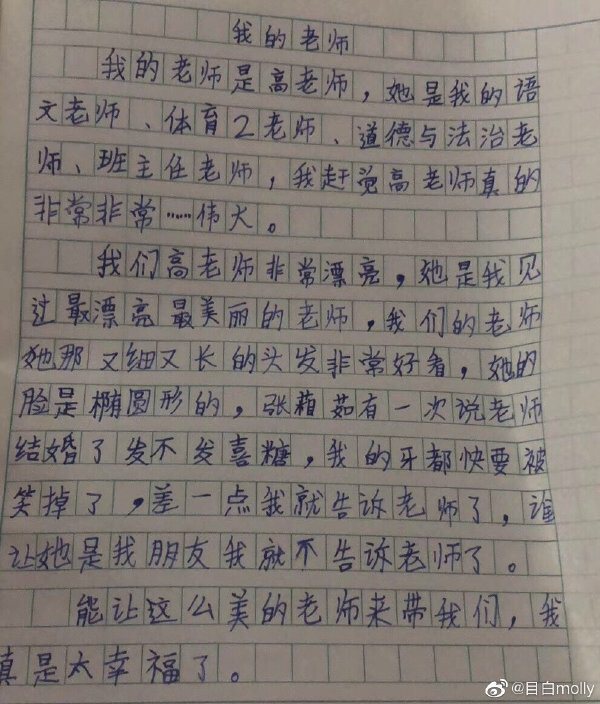 我的老师
我的老师是高老师，她是我的语
文老师、体育2老师、道德与法治老
师、班主任老师，我赶觉高老师真的
非常非常……伟大。
我们高老师非常漂亮，她是我见
过最漂亮最美丽的老师，我们的老师
她那又细又长的头发非常好看，她的
脸是椭圆形的，张茹有一次说老师
结婚了发不发喜糖，我的牙都快要被
笑掉了，差一点我就告诉老师了，谁
让她是我朋友我就不告诉老师了。
能让这么美的老师来带我们，我
真是太幸福了。
@目白molly